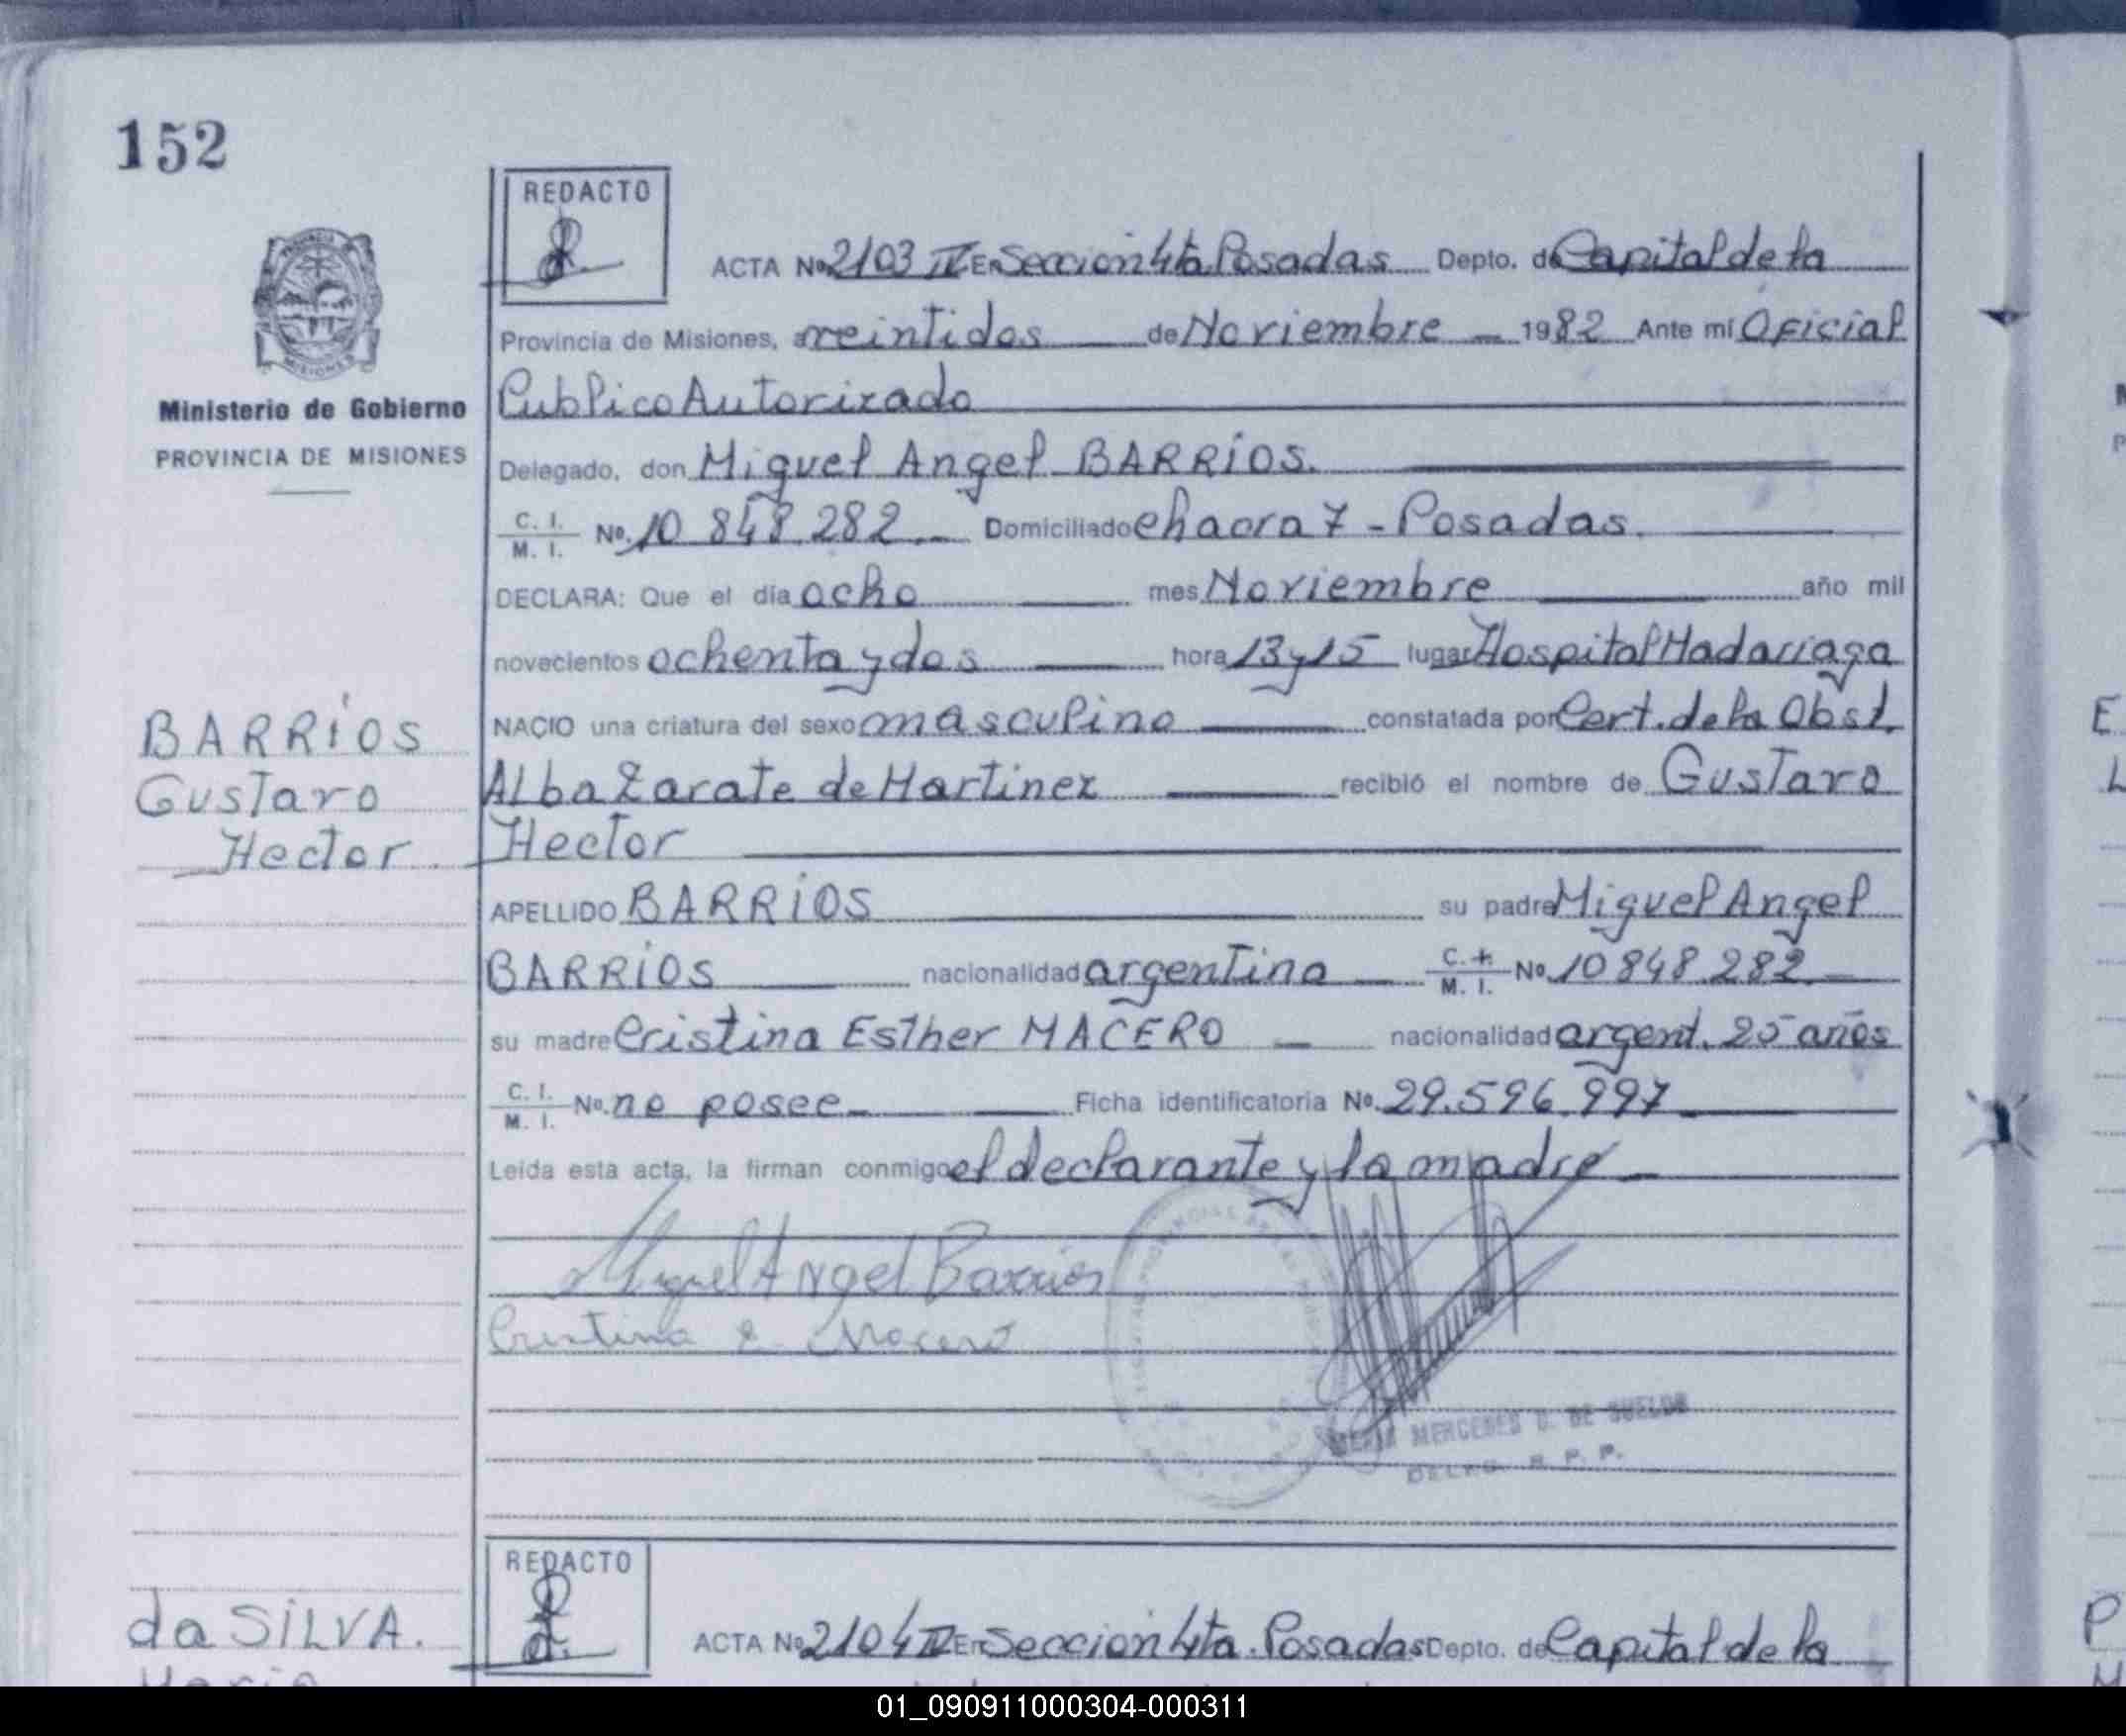 152
REDACTO
ACTA Nº 2103 IV En Seccion 4ta Posadas Depto. de Capital de la
Provincia de Misiones, a veintidos de Noviembre 1982 Ante mí Oficial
Ministerio de Gobierno
PROVINCIA DE MISIONES
Publico Autorizado
Delegado, don Miguel Angel BARRIOS.
C. I. / M. I. Nº. 10 848.282 Domiciliado chacra 7 - Posadas.
DECLARA: Que el día ocho mes Noviembre año mil
novecientos ochenta y dos hora 13 y 15 lugar Hospital Madariaga
NACIO una criatura del sexo masculino constatada por Cert. de la Obst.
Alba Zarate de Martinez recibió el nombre de Gustavo
Hector
BARRIOS
Gustavo
Hector.
APELLIDO BARRIOS su padre Miguel Angel
BARRIOS nacionalidad argentina C. I. / M. I. Nº 10 848.282
su madre Cristina Esther MACERO nacionalidad argent. 25 años
C. I. / M. I. Nº. no posee Ficha identificatoria Nº. 29.596.997
Leída esta acta, la firman conmigo el declarante y la madre
Miguel Angel Barrios
Cristina E. Macero
MERCEDES D. DE SUELDO
R. P. P.
REDACTO
da SILVA.
ACTA Nº 2104 IV En Seccion 4ta. Posadas Depto. de Capital de la
María
01_090911000304-000311